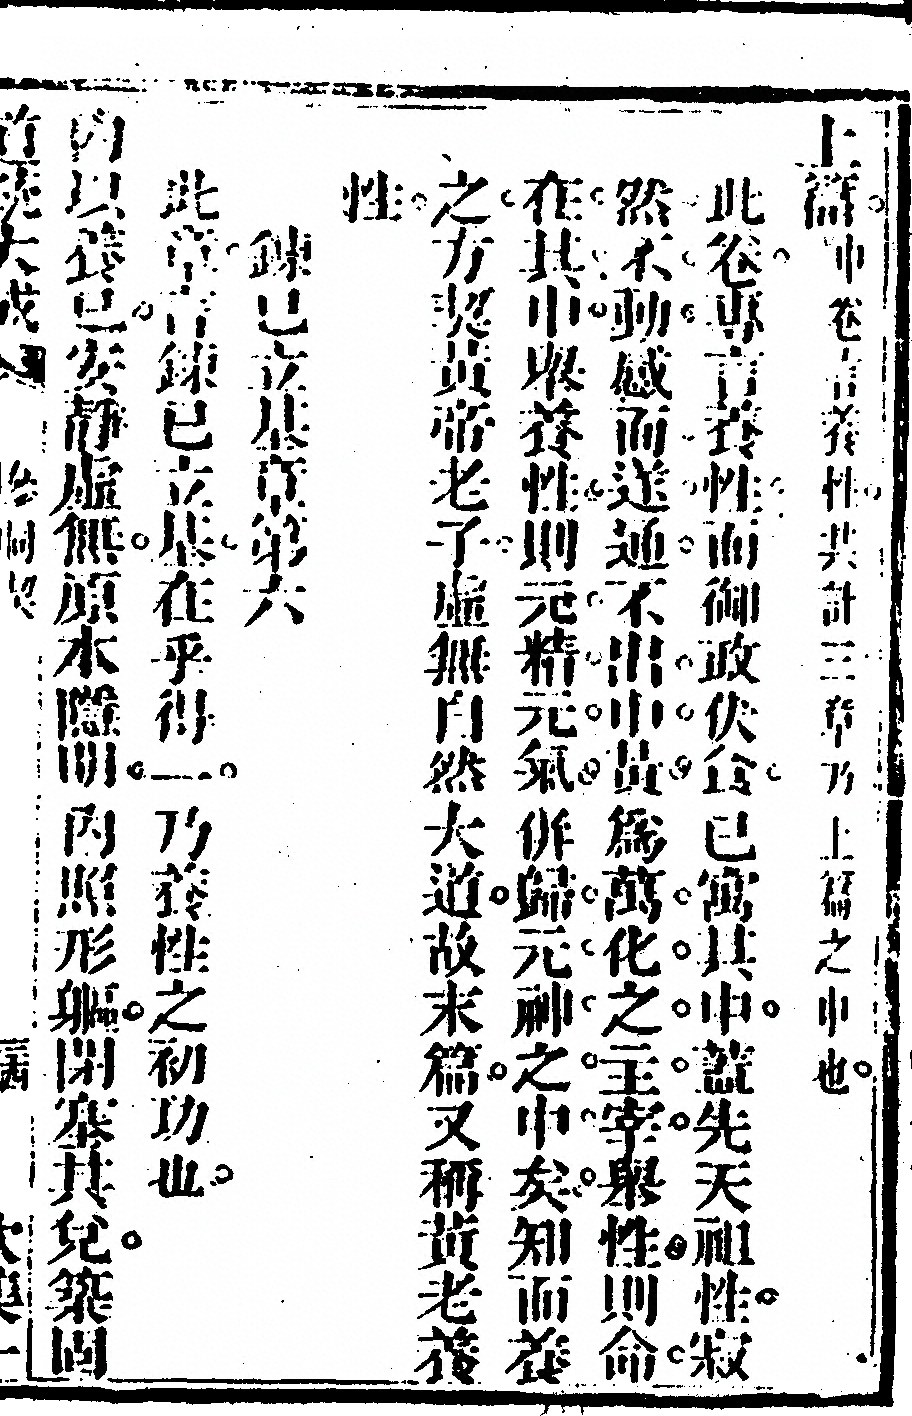 上篇中卷言養性共計三章乃上篇之中也
此卷專言養性而御政伏食已寓其中蓋先天祖性寂
然不動感而遂通不出中黃為萬化之主宰舉性則命
在其中舉養性則元精元氣併歸元神之中矣知而養
之方契黃帝老子虛無自然大道故末篇又稱黃老養
性
鍊己立基章第六
此章言鍊己立基在乎得一乃養性之初功也
內以養己安靜虛無原本隱明內照形軀閉塞其兌築固
道藏大成